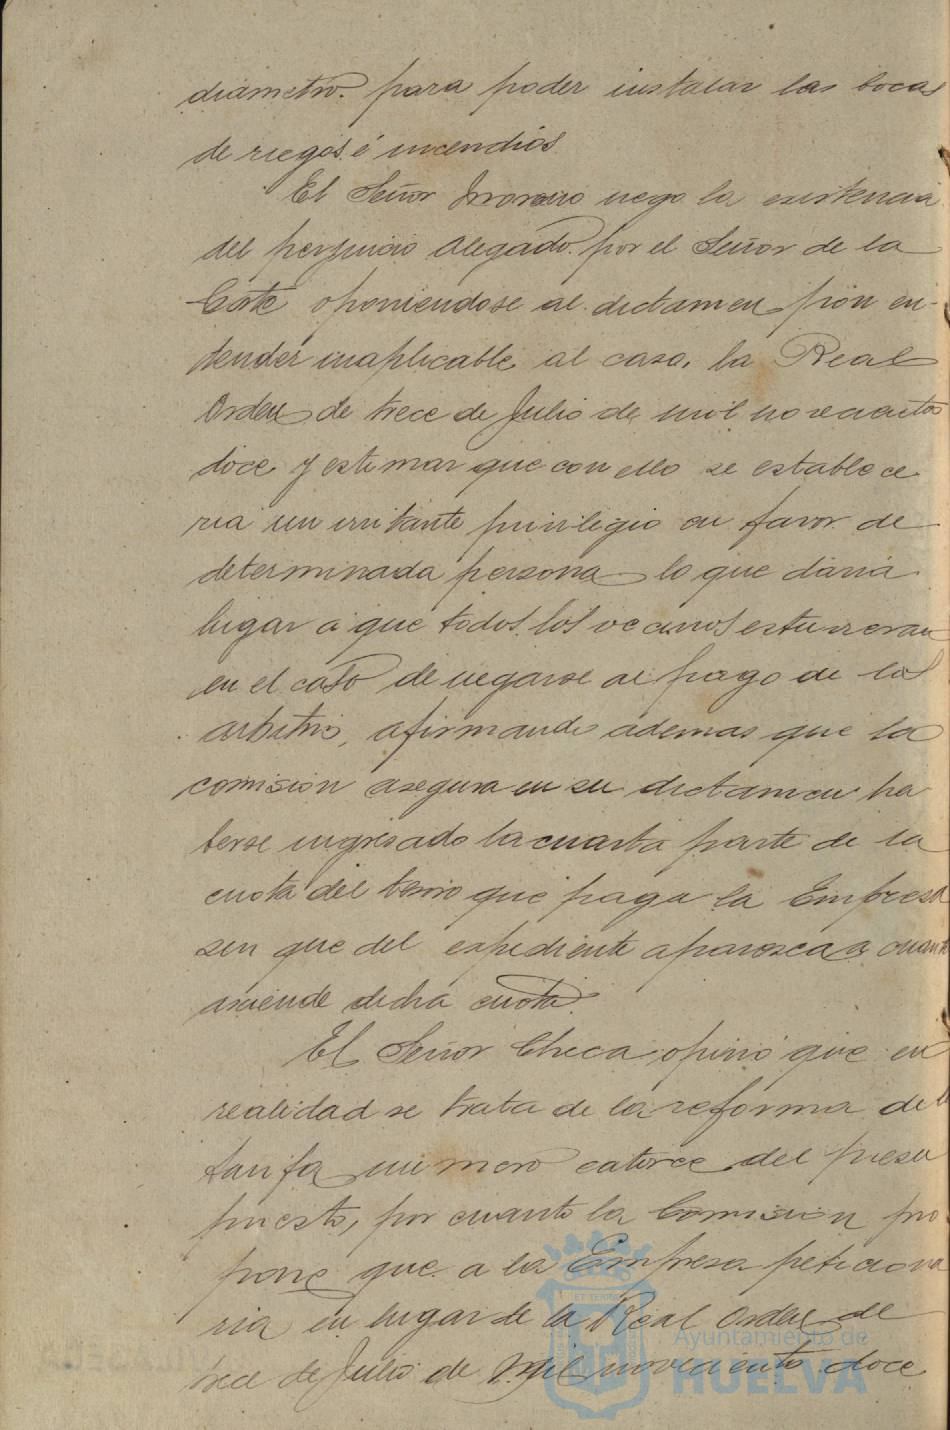 diametro. para poder instalar las bocas
de riegos é incendios
El Señor Moreno nego la existencia
del perjuicio alegado. por el Señor de la
Corte oponiendose al dictamen pòr en-
tender inaplicable al caso. la Real
Orden de trece de Julio de mil novecientos
doce y estimar que con ello se establece
ria un irritante privilegio en favor de
determinada persona lo que daria
lugar a que todos los vecinos estuvieran
en el caso de negarse al pago de los
arbitrios, afirmando ademas que la
comision asegura en su dictamen ha
berse ingresado la cuarta parte de la
cuota del que paga la Empresa
sin que del expediente aparezca a cuanto
asciende dicha cuota.
El Señor Checa opinó que en
realidad se trata de la reforma de la
tarifa numero catorce del presu
puesto, por cuanto la Comision pro
pone que a la Empresa peticiona
ria en lugar de la Real Orden de
trece de Julio de Mil novecientos doce
Ayuntamiento de
HUELVA